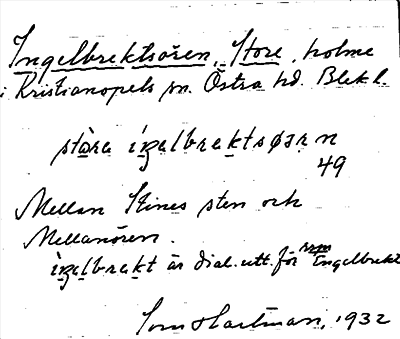 Ingelbrektsören, Store, holme
i Kristianopels sn. Östra hd. Blek l.
stòra iŋəlbrektsøɶrn
49
Mellan Stines sten och
Mellanören.
iŋəlbrekt är dial. utt. för srn Engelbrekt
Tors Hartman, 1932